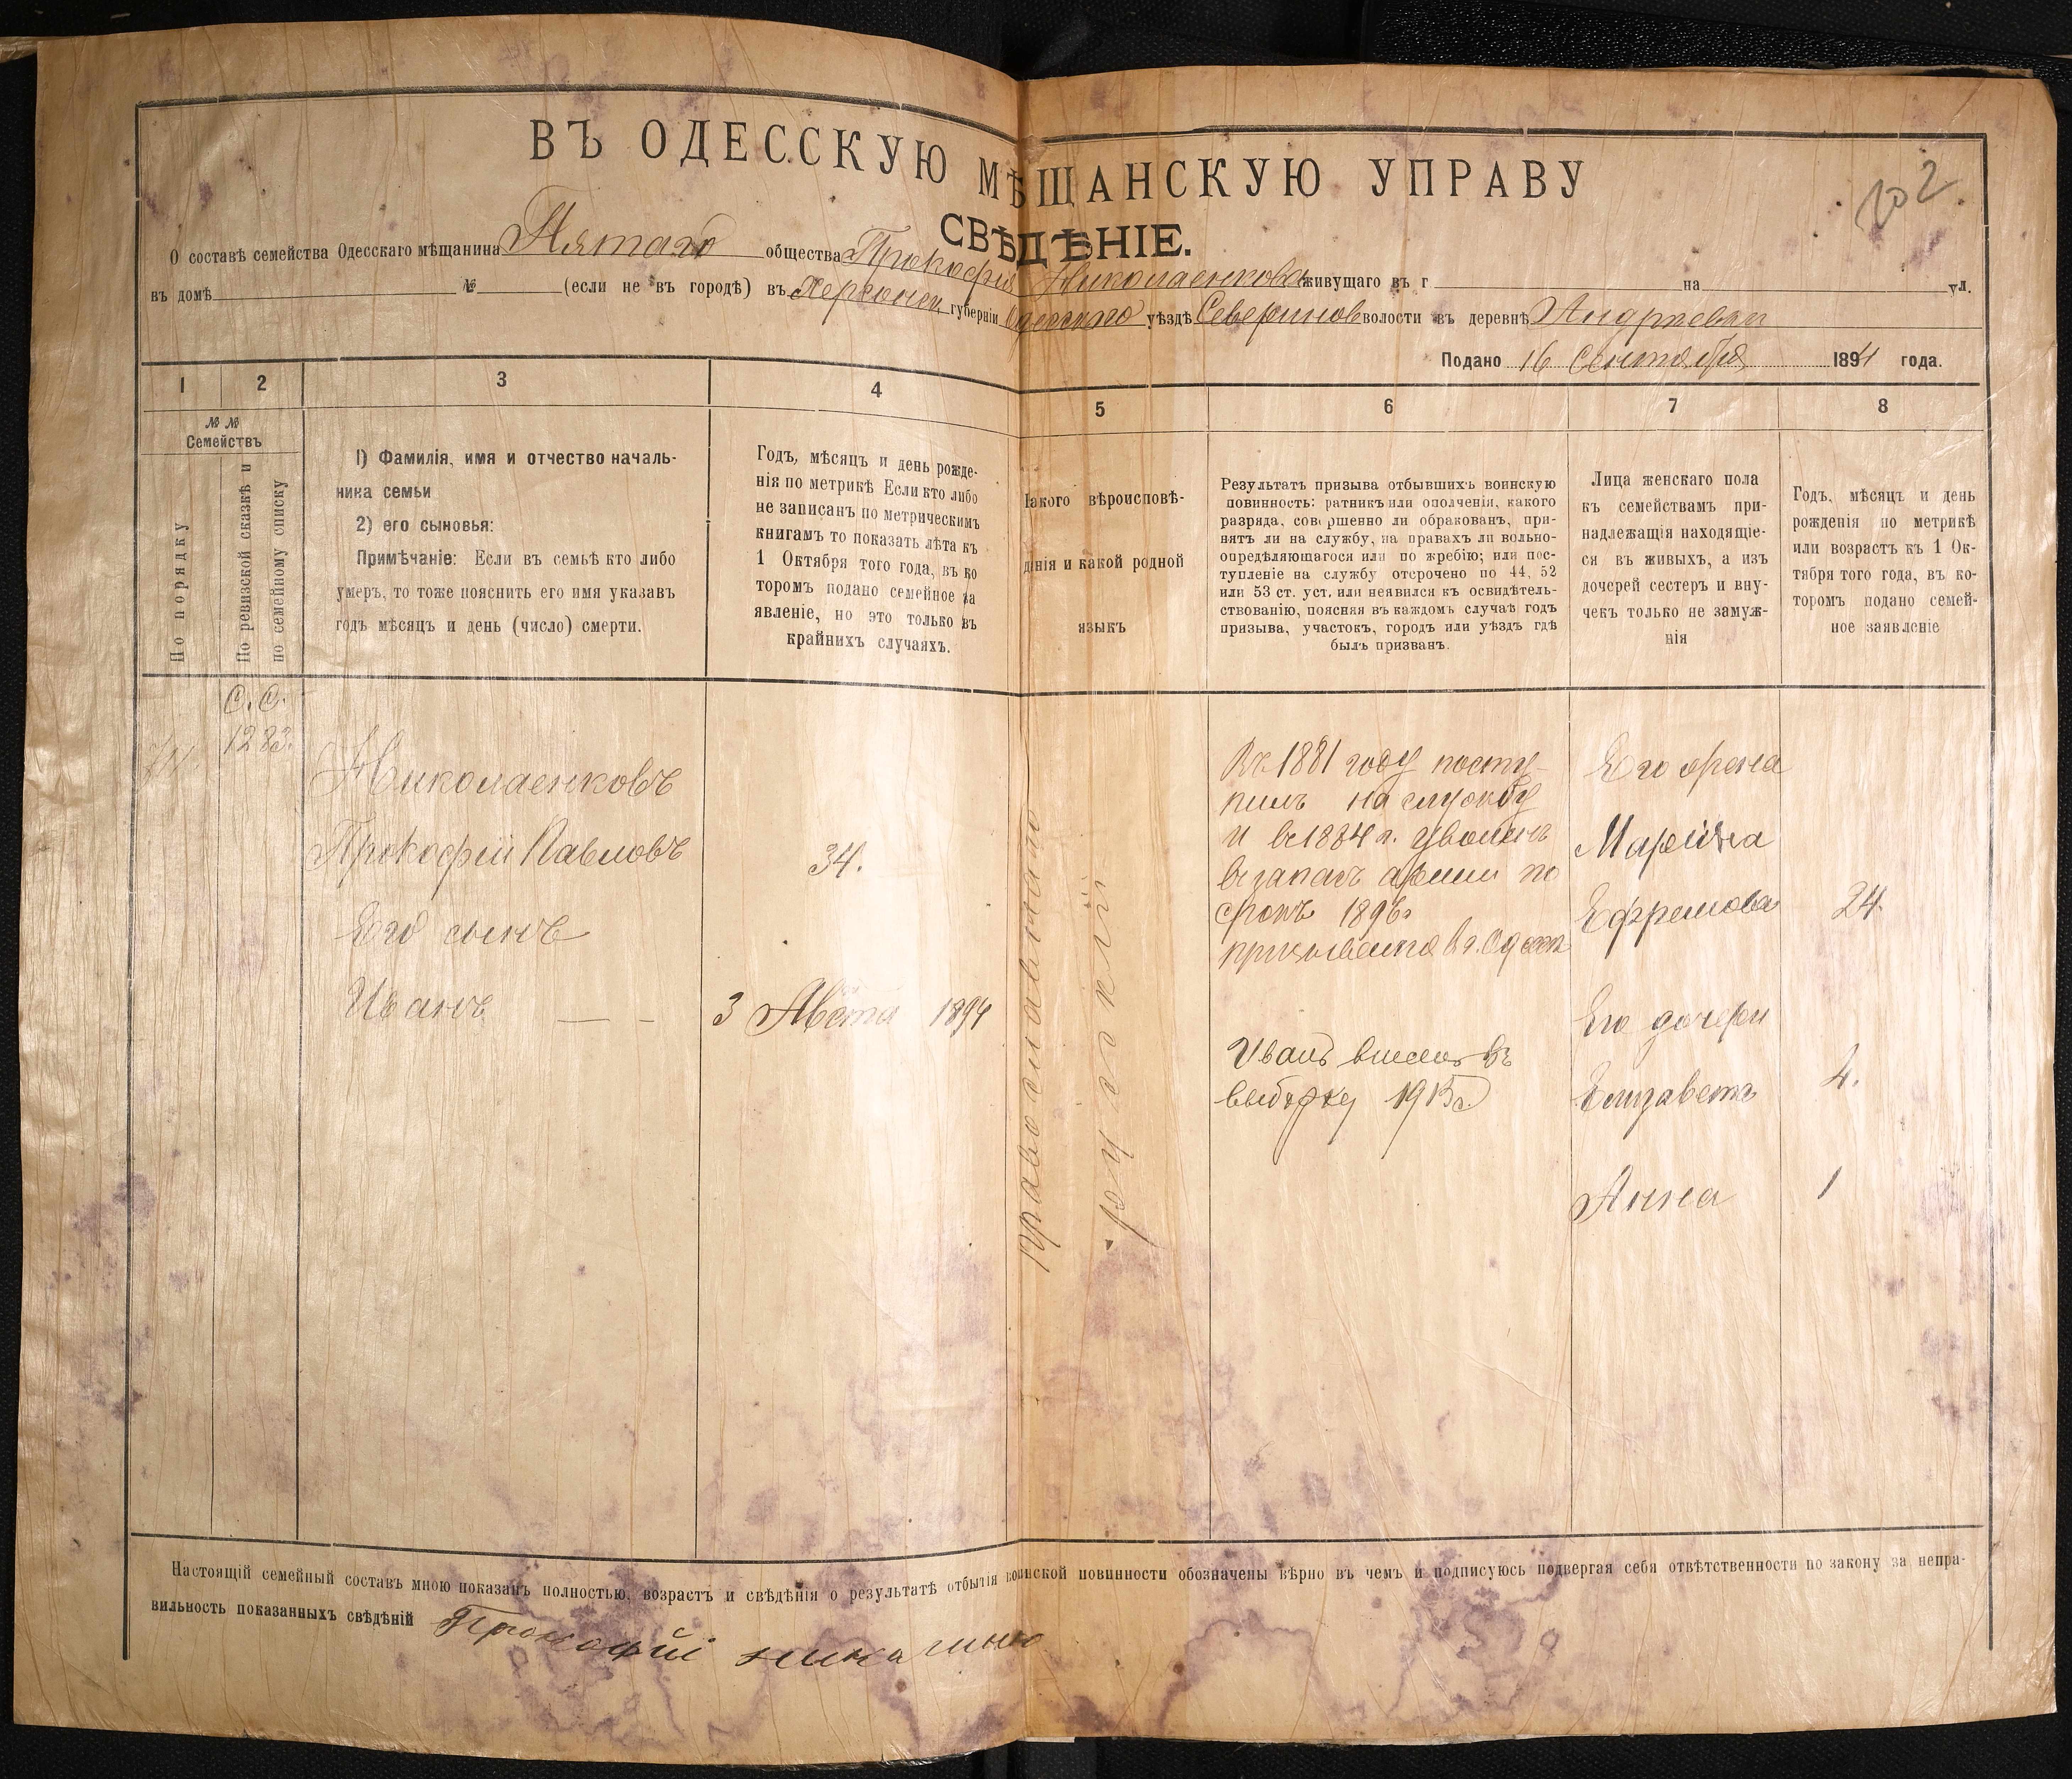 ВЪ ОДЕССКУЮ МѢЩАНСКУЮ УПРАВУ
202
СВѢДѢНІЕ.
О составѣ семейства Одесскаго мѣщанина Пятаго общества Прокофія Николаенкова живущаго въ г на ул.
въ домѣ № (если не въ городѣ) въ Херсонск. губерніи Одесскаго уѣздѣ Севериновволости въ деревнѣ Андреевки
Подано 16 Сентября 1894 года.
1 2 3 4 5 6 7 8
№ №
Семействъ
По порядку
По ревизской сказкѣ и
по семейному списку
1) Фамилія, имя и отчество началь-
ника семьи
2) его сыновья:
Примѣчаніе: Если въ семьѣ кто либо
умеръ, то тоже пояснить его имя указавъ
годъ мѣсяцъ и день (число) смерти.
Годъ, мѣсяцъ и день рожде-
нія по метрикѣ Если кто либо
не записанъ по метрическимъ
книгамъ то показать лѣта къ
1 Октября того года, въ ко
торомъ подано семейное за
явленіе, но это только въ
крайнихъ случаяхъ.
Какого вѣроисповѣ-
дннія и какой родной
языкъ
Результатъ призыва отбывшихъ воинскую
повинность: ратникъ или ополченія, какого
разряда, совершенно ли обракованъ, при-
нятъ ли на службу, на правахъ ли вольно-
опредѣляющагося или по жребію; или пос-
тупленіе на службу отсрочено по 44, 52
или 53 ст. уст. или неявился къ освидѣтель-
ствованію, поясняя въ каждомъ случаѣ годъ
призыва, участокъ, городъ или уѣздъ гдѣ
былъ призванъ.
Лица женскаго пола
къ семействамъ при-
надлежащія находящіе-
ся въ живыхъ, а изъ
дочерей сестеръ и вну-
чекъ только не замуж-
нія
Годъ, мѣсяцъ и день
рожденія по метрикѣ
или возрастъ къ 1 Ок-
тября того года, въ ко-
торомъ подано семей-
ное заявленіе
С. С.
1283.
Николаенковъ
Прокофій Павловъ
34.
Его сынъ
Иванъ
3 Авгста 1894
православнаго
русскій
Въ 1881 году посту-
пилъ на службу
и въ 1884 г. уволенъ
въ запасъ арміи по
срокъ 1896г
призывался в г. Одессѣ
Иванъ внесенъ въ
выборку 1915г.
Его жена
Марина
Ефремова 24.
Его дочери
Елизавета 4.
Анна 1
Настоящій семейный составъ мною показанъ полностью, возрастъ и свѣдѣнія о результатѣ отбытія воинской повинности обозначены вѣрно въ чемъ и подписуюсь подвергая себя отвѣтственности по закону за непра-
вильность показанныхъ свѣдѣній Прокофйі